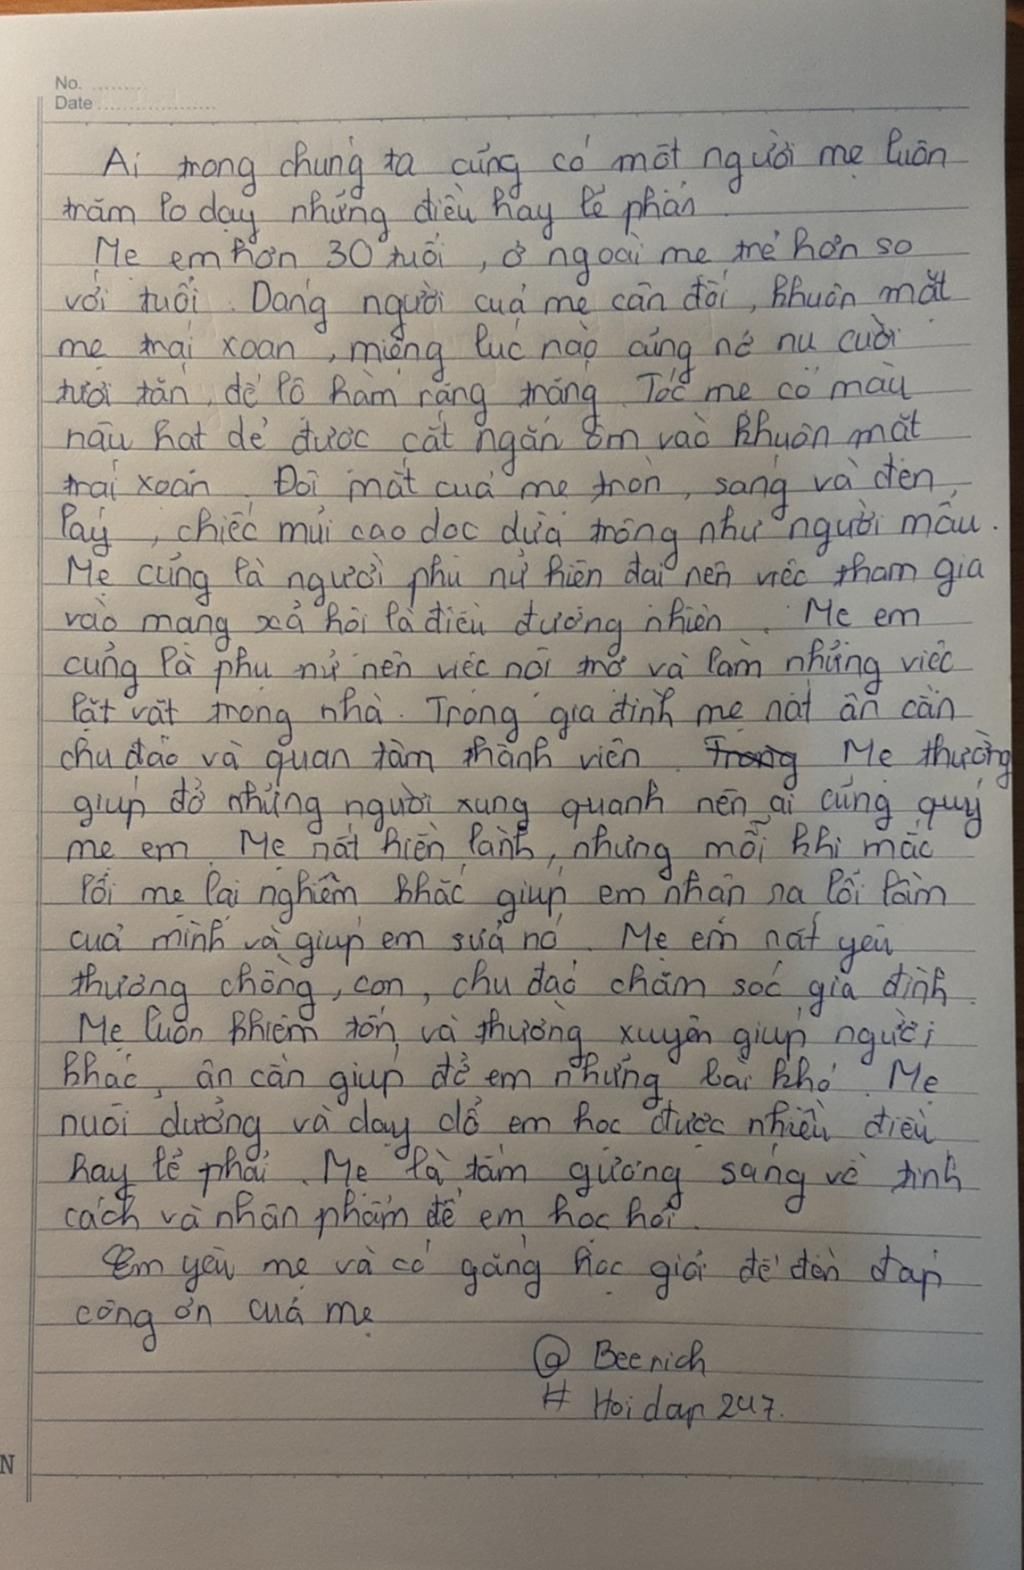 No. ............
Date ........................
Ai trong chúng ta cũng có một người mẹ luôn
trăm lo dạy những điều hay lẽ phải
Mẹ em hơn 30 tuổi, ở ngoài mẹ trẻ hơn so
với tuổi. Dáng người của mẹ cân đối, khuôn mặt
mẹ trái xoan, miệng lúc nào cũng nở nụ cười
tươi tắn, để lộ hàm răng trắng. Tóc mẹ có màu
nâu hạt dẻ được cắt ngắn ôm vào khuôn mặt
trái xoan. Đôi mắt của mẹ tròn, sáng và đen
láy, chiếc mũi cao dọc dừa trông như người mẫu.
Mẹ cũng là người phụ nữ hiện đại nên việc tham gia
vào mạng xã hội là điều đương nhiên. Mẹ em
cũng là phụ nữ nên việc nội trợ và làm những việc
lặt vặt trong nhà. Trong gia đình mẹ rất ân cần
chu đáo và quan tâm thành viên. Trong Mẹ thường
giúp đỡ những người xung quanh nên ai cũng quý
mẹ em. Mẹ rất hiền lành, nhưng mỗi khi mắc
lỗi mẹ lại nghiêm khắc giúp em nhận ra lỗi lầm
của mình và giúp em sửa nó. Mẹ em rất yêu
thương chồng, con, chu đáo chăm sóc gia đình.
Mẹ luôn khiêm tốn và thường xuyên giúp người
khác, ân cần giúp đỡ em những bài khó. Mẹ
nuôi dưỡng và dạy dỗ em học được nhiều điều
hay lẽ phải. Mẹ là tấm gương sáng về tính
cách và nhân phẩm để em học hỏi.
Em yêu mẹ và cố gắng học giỏi để đền đáp
công ơn của mẹ
@ Beerich
# Hoidap247.
N